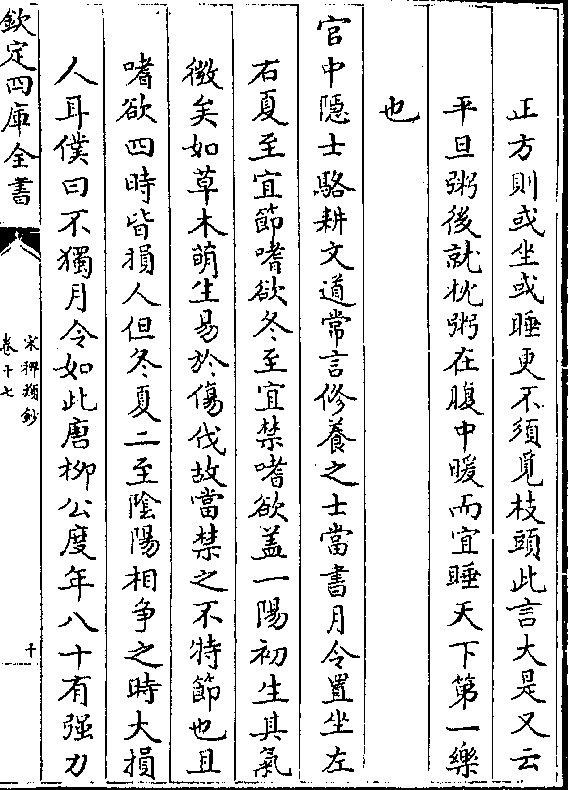 正方則或坐或睡更不須覓枕頭此言大是又云
平旦粥後就枕粥在腹中暖而宜睡天下第一樂
也
官中隱士駱耕文道常言修養之士當書月令置坐左
右夏至宜節嗜欲冬至宜禁嗜欲盖一陽初生其氣
微矣如草木萌生易於傷伐故當禁之不特節也且
嗜欲四時皆損人但冬夏二至陰陽相爭之時大損
人耳僕曰不獨月令如此唐柳公度年八十有强力
欽定四庫全書
宋稗類鈔
卷十七
十